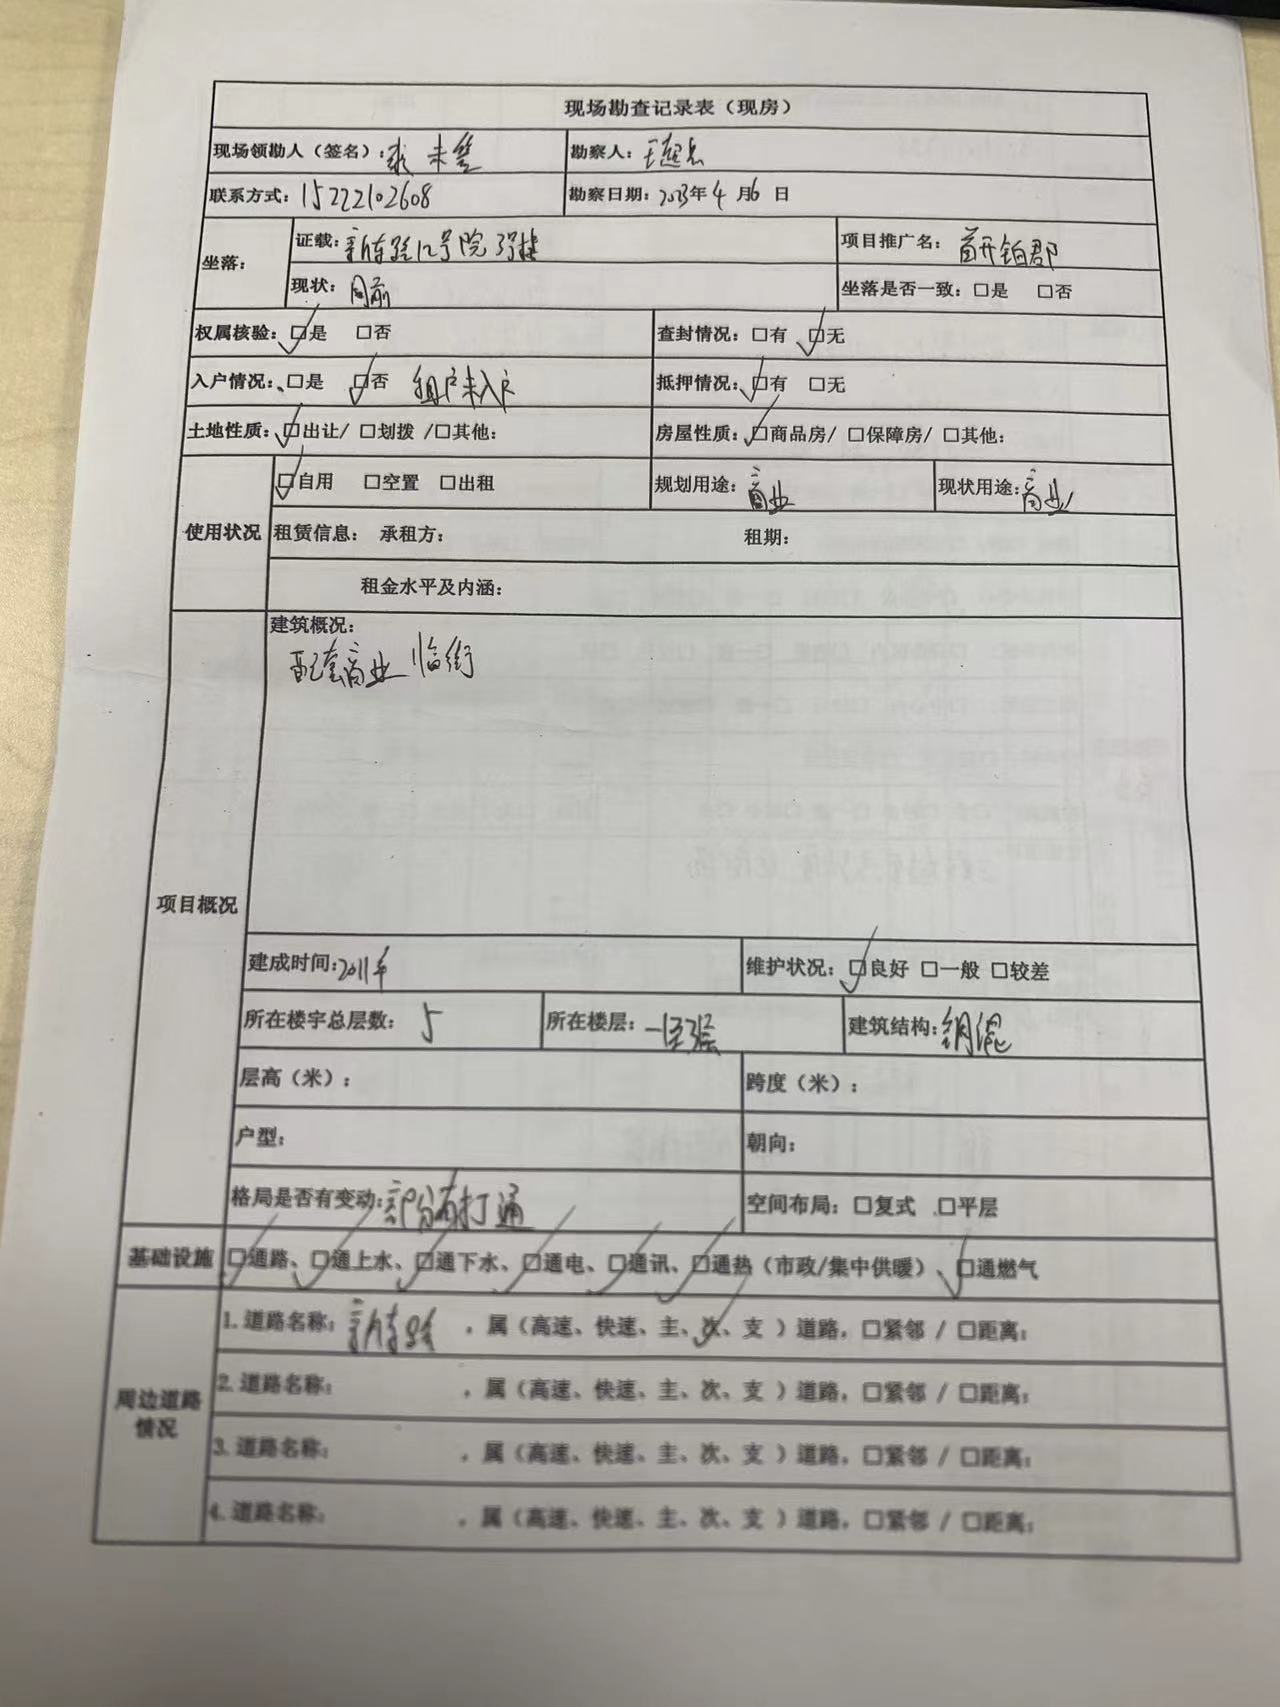 现场勘查记录表（现房）
现场领勘人（签名）： 未签 勘察人：
联系方式：15222102608 勘察日期：2023年4月6日
坐落： 证载：新东路12号院3号楼 项目推广名：首开铂郡
现状：同前 坐落是否一致：□是 □否
权属核验：☑是 □否 查封情况：□有 ☑无
入户情况：、□是 ☑否 租户未入户 抵押情况：☑有 □无
土地性质：☑出让/ □划拨 /□其他： 房屋性质：☑商品房/ □保障房/ □其他：
使用状况 ☑自用 □空置 □出租 规划用途：商业 现状用途：商业
租赁信息： 承租方： 租期：
租金水平及内涵：
项目概况 建筑概况：
配套商业 临街
建成时间：2011年 维护状况：☑良好 □一般 □较差
所在楼宇总层数：5 所在楼层：一至3层 建筑结构：钢混
层高（米）： 跨度（米）：
户型： 朝向：
格局是否有变动：部分有打通 空间布局：□复式 □平层
基础设施 ☑通路、☑通上水、☑通下水、☑通电、☑通讯、☑通热（市政/集中供暖）、☑通燃气
周边道路情况 1.道路名称：新东路 ，属（高速、快速、主、次✓、支 ）道路，□紧邻 / □距离：
2.道路名称： ，属（高速、快速、主、次、支 ）道路，□紧邻 / □距离：
3.道路名称： ，属（高速、快速、主、次、支 ）道路，□紧邻 / □距离：
4.道路名称： ，属（高速、快速、主、次、支 ）道路，□紧邻 / □距离：